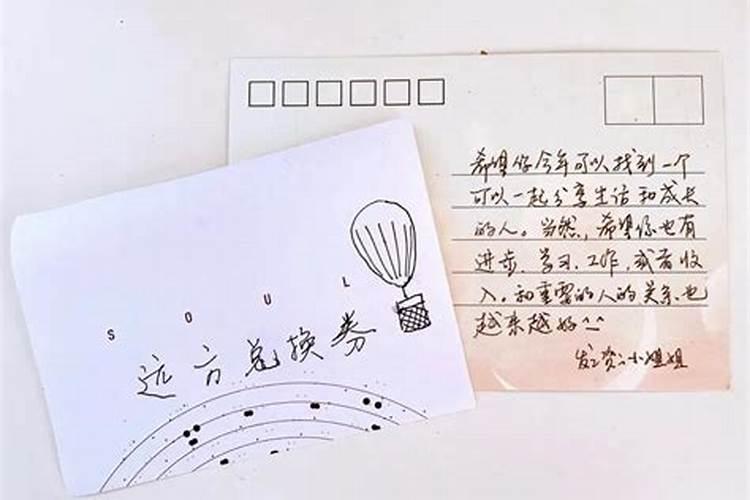 希望你今年可以找到一个
可以一起分享生活和成长
的人。当然,希望你也有
进步.学习.工作,或者收
入。和重要的人的关系也
越来越好^^
小姐姐
SOUL
远方兑换券